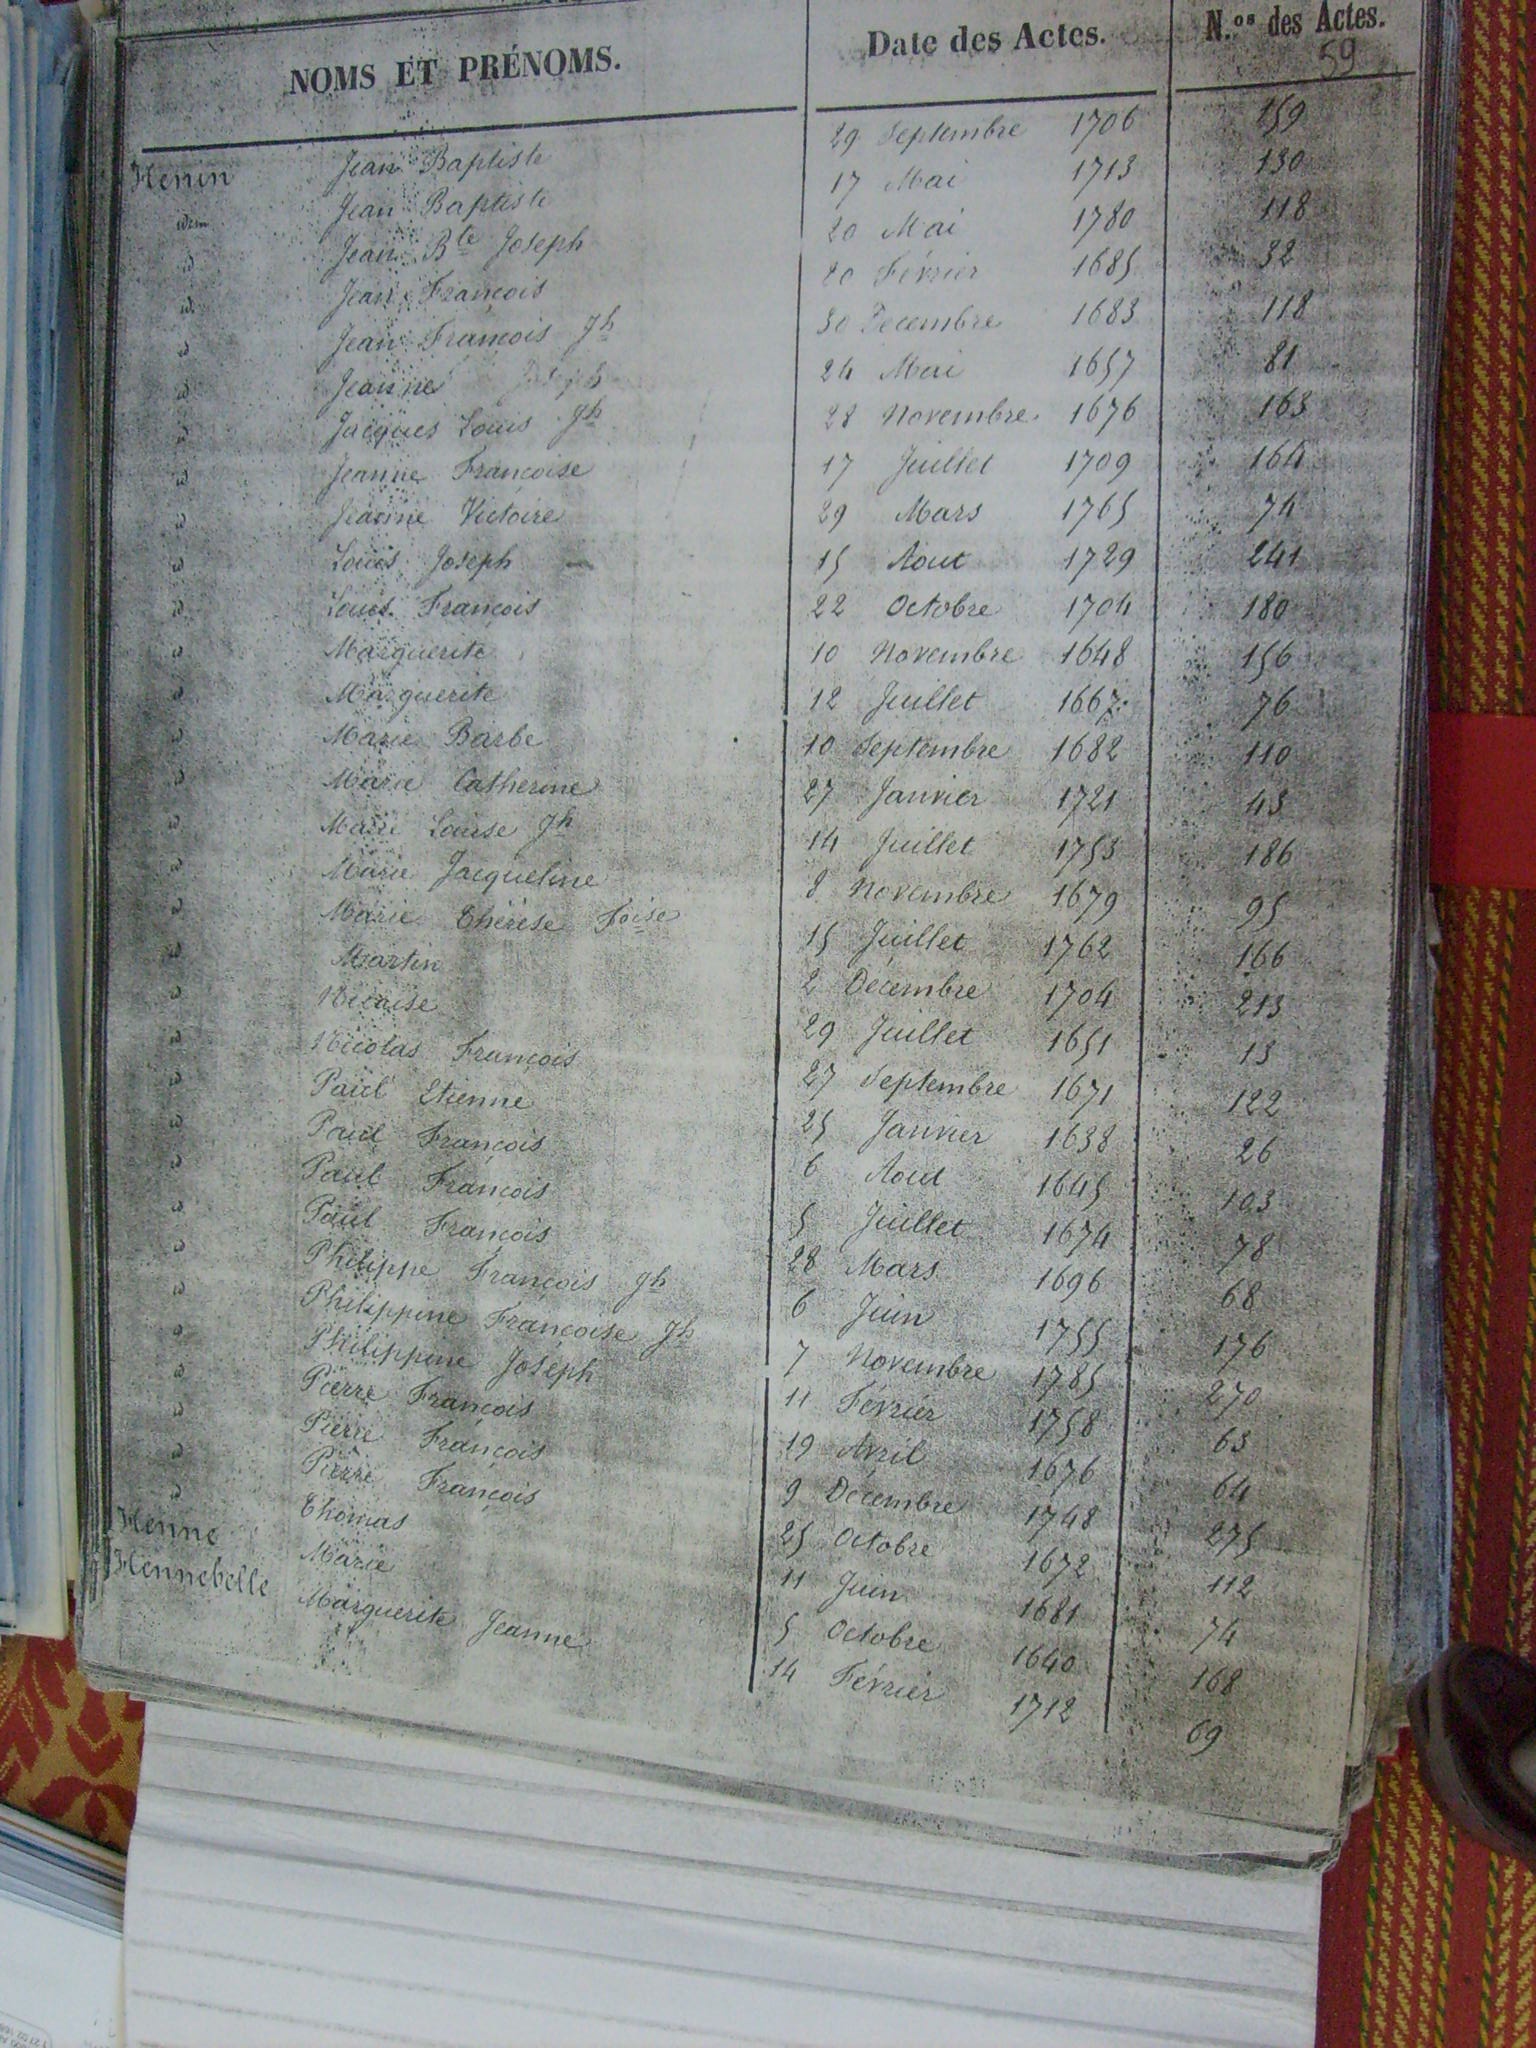 NOMS ET PRÉNOMS. Date des Actes. N.os des Actes.
59
Henin Jean Baptiste 29 Septembre 1706 159
idem Jean Baptiste 17 Mai 1713 130
id Jean Bte Joseph 20 Mai 1780 118
id Jean François 20 Février 1685 32
id Jean François Jh 30 Decembre 1683 118
id Jeanne 24 Mai 1657 81
id Jacques Louis Jh 28 Novembre 1676 163
id Jeanne Françoise 17 Juillet 1709 164
id Jeanne Victoire 29 Mars 1765 74
id Louis Joseph 15 Aout 1729 241
id Louis François 22 Octobre 1704 180
id Marguerite 10 Novembre 1648 156
id Marguerite 12 Juillet 1667 76
id Marie Barbe 10 Septembre 1682 110
id Marie Catherine 27 Janvier 1721 43
id Marie Louise Jh 14 Juillet 1753 186
id Marie Jacqueline 8 Novembre 1679 95
id Marie Thérèse Foise 15 Juillet 1762 166
id Martin 2 Décembre 1704 213
id Nicaise 29 Juillet 1651 13
id Nicolas François 27 Septembre 1671 122
id Paul Etienne 25 Janvier 1638 26
id Paul François 6 Aout 1645 103
id Paul François 5 Juillet 1674 78
id Paul François 28 Mars 1696 68
id Philippe François Jh 6 Juin 1755 176
id Philippine Françoise Jh 7 Novembre 1785 270
id Philippine Joseph 11 Février 1758 63
id Pierre François 19 Avril 1676 64
id Pierre François 9 Décembre 1748 275
id Pierre François 25 Octobre 1672 112
id Thomas 11 Juin 1681 74
Henne Marie 5 Octobre 1640 168
Hennebelle Marguerite Jeanne 14 Février 1712 69